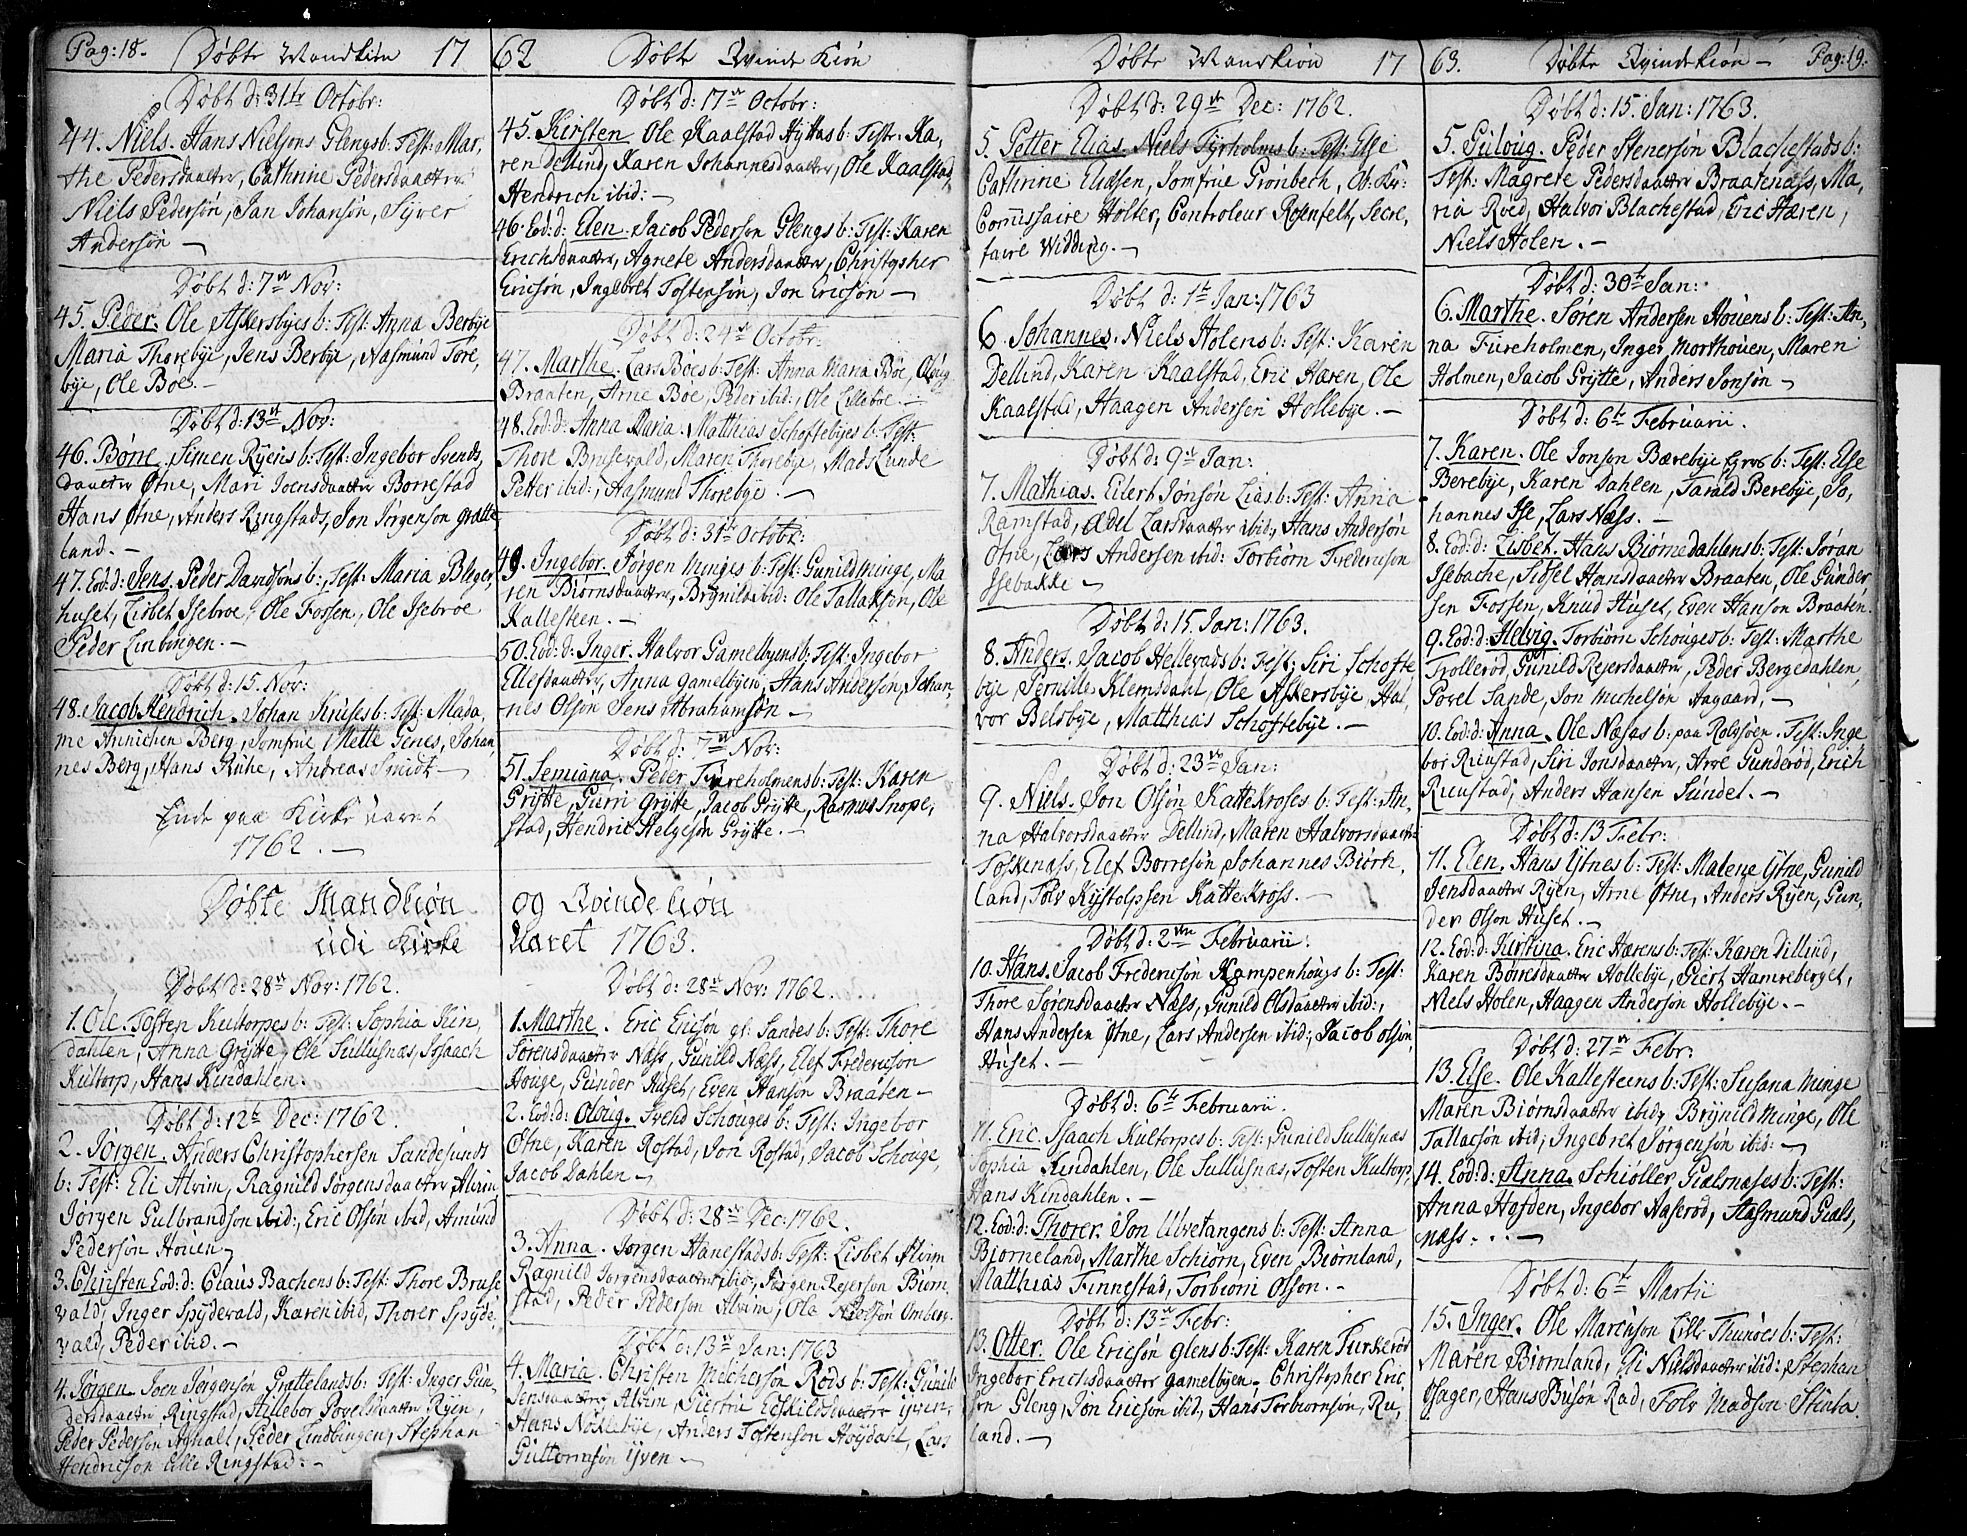 Pag: 18. Døbte Mandkiøn 17
Døbt d: 31te Octobr:
44. Niels. Hans Nielsøns Glengs b: Test: Mar,
the Pedersdaatter, Cathrine Pedersdaatter
Niels Pedersøn, Jan Johansøn, Syver
Andersøn
Døbt d: 7de Nov:
45. Peder. Ole Askersbyes b: Test: Anna Berbÿe
Maria Thorebÿe, Jens Berbÿe, Aasmund Tore,
bÿe, Ole Boe.
Døbt d: 13de Nov:
46. Børre. Simen Rÿens b: Test: Ingebor Svends,
daatter Øtne, Mari Joensdaatter Borrestad
Hans Øtne, Anders Ringstads, Jon Jørgenson Grotte
land.
47. Eod: d: Jens. Peder Davidsøns b: Test: Maria Bleger,
huset, Lisbet Isebroe, Ole Fossen, Ole Isebroe
Peder Linbingen.
Døbt d: 15. Nov:
48. Jacob Hendrich. Johan Kruses b: Test: Mada,
me Annichen Berg, Jomfrue Mette Genes, Johan
nes Berg, Hans Ruhe, Andreas Smidt
Ende paa Kirke Aaret
1762.
Døbte Mandkiøn
udi Kirke
Døbt d: 28de Nov: 1762.
1. Ole. Tosten Kultorpes b: Test: Sophia Kin,
dahlen, Anna Grÿtte, Ole Sullusnæs, Isaach
Kultorp, Hans Kindahlen.
Døbt d: 12te Dec: 1762.
2. Jørgen. Anders Christophersen Sandesunds
b: Test: Eli Alvim, Ragnild Jørgensdaatter Alvim
Jørgen Gulbrandsøn ibid:, Eric Olsøn ibid, Amund
Pedersøn Houen
3. Christen Eod: d: Claus Bachens b: Test: Thore Bruse
vald, Inger Spydevald, Karen ibid, Thorer Spyde,
vald, Peder ibid.
4. Jørgen. Joen Jørgensøn Grottelands b: Test: Inger Gun,
dersdaatter Ringstad, Hillebor Povelsdaatter Rÿen,
Peder Pedersøn Aghalt, Peder Lindbingen, Stephan
Hendricsøn Lille Ringstad:
62 Døbte Qvinde Kiøn
Døbt d: 17de Octobr:
45. Kirsten Ole Kaalstad Hyttas b: Test: Ka,
ren Dellind, Karen Johannesdaatter, Ole Kaalstad,
Hendrich ibid:
46. Eod: d: Elen. Jacob Pedersøn Glengs b: Test: Karen
Erichsdaatter, Agnete Andersdaatter, Christopher
Ericsøn, Ingebret Tostensøn, Jon Ericsøn
Døbt d: 24de Octobr:
47. Marthe. Lars Bøes b: Test: Anna Maria Bøe, Oloug
Braaten, Arne Boe, Peder ibid:, Ole Lilleboe.
48. Eod: d: Anna Maria. Matthias Schoftebyes b: Test:
Thore Brusevald, Maren Thorebye, Mads Lunde
Petter ibid:, Aasmund Thorebye.
Døbt d: 31te Octobr:
49. Ingebor. Jørgen Minges b: Test: Gunild Minge, Ma
ren Biørnsdaatter, Brynild ibid: Ole Tallaksøn, Ole
Kallesteen.
50. Eod: d: Inger. Halvor Gamelbyens b: Test: Ingebor
Ellefsdaatter, Anna Gamelbyen, Hans Andersøn, Johan,
nes Olsøn Jens Abrahamsøn
Døbt d: 7de Nov:
51. Semiana. Peder Fureholmens b: Test: Karen
Grÿtte, Gurri Grÿtte, Jacob Grÿtte, Rasmus Snope,
stad, Hendric Helgesøn Grÿtte.
og Qvindekiøn
Aaret 1763.
Døbt d: 28de Nov: 1762.
1. Marthe. Eric Ericsøn gl: Sandes b: Test: Thore
Sørensdaatter Næss, Gunild Næss, Elef Fredericson
Houge, Gunder Huset, Even Hansøn Braaten
2. Eod: d: Oloug. Svend Schouges b: Test: Ingebor
Øtne, Karen Rostad, Jon Rostad, Jacob Schouge,
Jacob Dahlen
Døbt d: 28de Dec: 1762.
3. Anna. Jørgen Hanestads b: Test: Lisbet Alvim
Ragnild Jorgensdaatter ibid:, Jørgen Reiersøn Biørn,
stad, Peder Pederson Alvim, Ole Nielsøn Omberg
Døbt d: 13de Jan: 1763
4. Maria. Christen Melchersøn Røds b: Test: Gunild
Jensdaatter Alvim, Siestru Eeskildsdaatter Yven,
Hans Nøklebye, Anders Tostensøn Høydahl, Lars
Guttormsøn Yven
Døbte Mandkiøn 17
Døbt d: 29de Dec: 1762.
5. Petter Elias. Niels Tyrholms b: Test: Else
Cathrine Eliesen, Jomfrue Grønbech, Ob: Kr:
Comissaire Holter, Controleur Rosenfelt, Secre,
taire Widding.
Døbt d: 1te Jan: 1763
6. Johannes. Niels Holens b: Test: Karen
Dellind, Karen Kaalstad, Eric Hæren, Ole
Kaalstad, Haagen Andersen Hollebye.
Døbt d: 9de Jan:
7. Mathias. Eilert Jønsøn Lias b: Test: Anna
Ramstad, Ædel Larsdaatter ibid:, Hans Andersøn
Øtne, Lars Andersen ibid: Torbiørn Fredericson
Isebakke
Døbt d: 15. Jan: 1763.
8. Anders. Jacob Hellevads b: Test: Siri Schofte
bye, Pernille Klemsdahl, Ole Askersbye, Hal,
vor Belsbye, Matthias Schoftebye.
Døbt d: 23de Jan:
9. Niels. Jon Olsøn Kattekroses b: Test: An,
na Halvorsdaatter Dellind, Maren Halvorsdaatter
Toskenæss, Elef Borresøn, Johannes Biørn,
land, Tolv Kystolpsen Kattekross.
Døbt d: 2den Februarii:
10. Hans. Jacob Fredericsøn Kampenhougs b: Test:
Thore Sørensdaatter Næss, Gunild Olsdaatter ibid:,
Hans Andersen Øtne, Lars Andersen ibid:, Jacob Olsøn
Huset.
Døbt d: 6te Februarii.
11. Eric. Isaach Kultorpes b: Test: Gunild Sullusnæs
Sophia Kindahlen, Ole Sullusnæs, Tosten Kultorp,
Hans Kindahlen.
12. Eod: d: Thorer. Jon Ulvetangens b: Test: Anna
Biørneland, Marthe Schiørn, Even Biørnland,
Matthias Finnestad, Torbiørn Olson.
Døbt d: 13de Febr:
13. Otter. Ole Ericsøn Glens b: Test: Karen Furkerød
Ingebor Erichsdaatter Gamelbyen, Christopher Eric,
søn Gleng, Jon Ericsøn ibid, Hans Torbiørnsøn, Ru,
land.
63. Døbte Qvindekiøn Pag: 19.
Døbt d: 15. Jan: 1763.
5. Guloug. Peder Stenersøn Blachestads b:
Test: Magrete Pedersdaatter Braatenæss, Ma,
ria Røed, Halvor Blachestad, Eric Hæren,
Niels Holen.
Døbt d: 30te Jan:
6. Marthe. Søren Andersen Houens b: Test: An,
na Fureholmen, Inger Morthouen, Maren
Holmen, Jacob Grÿtte, Anders Jonsøn
Døbt d: 6te Februarii.
7. Karen. Ole Jonson Bærebye b: Test: Else
Berebye, Karen Dahlen, Tarald Berebye, Jo,
hannes Ise, Lars Næss.
8. Eod: d: Lisbet. Hans Biørnedahlens b: Test: Jøran
Isebache, Sidsel Hansdaatter Braaten, Ole Gunder
sen Fossen, Knud Huset, Even Hanson Braaten.
9. Eod: d: Helvig. Torbiørn Schouges b: Test: Marthe
Trollerød, Gunild Reiersdaatter, Peder Bergedahlen,
Povel Sande, Jon Michelsøn Aagaard,
10. Eod: d: Anna. Ole Næsas b: paa Rolsøen. Test: Inge
bor Rustad, Siri Jonsdaatter, Arve Gunderød, Erich
Runstad, Anders Hansen Sundet.
Døbt d: 13 Febr:
11. Elen. Hans Ystnes b: Test: Malene Ytne, Gunild
Jensdaatter Rÿen, Arne Øtne, Anders Rÿen, Gun,
der Olson Huset.
12. Eod: d: Kirstina. Eric Hærens b: Test: Karen Dillind,
Karen Børresdaatter Hollebye, Siert Hamreberget,
Niels Holen, Haagen Anderson Hollebye.
Døbt d: 27de Febr:
13. Else. Ole Kallesteens b: Test: Susana Minge
Maren Biørnsdaatter ibid, Brynild Minge, Ole
Tallacsøn ibid, Ingebret Jørgensøn ibid:
14. Eod: d: Anna. Schiøller Gialsnæses b: Test:
Anna Hafden, Ingebor Naserød, Aasmund Gials,
næss.
Døbt d: 6te Martii
15. Inger. Ole Marenson Lille Thunøes b: Test:
Maren Biørnland, Eli Nielsdaatter ibid:, Stephan
Hans Buson Rad, Tolv Madson Stenta.